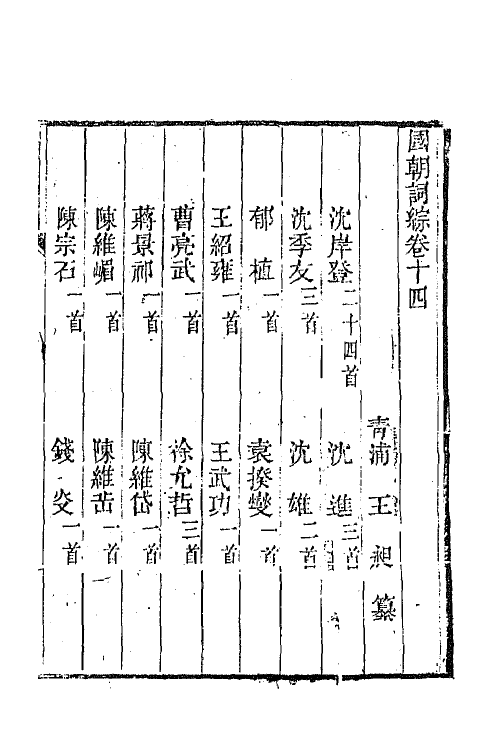 國朝詞綜卷十四
青浦 王昶 纂
沈岸登二十四首 沈進三首
沈季友三首 沈雄二首
郁植一首 袁揆燮一首
王紹雍一首 王武功一首
曹亮武一首 徐允哲三首
蔣景祁一首 陳維岱一首
陳維嵋一首 陳維岳一首
陳宗石一首 錢㷍一首